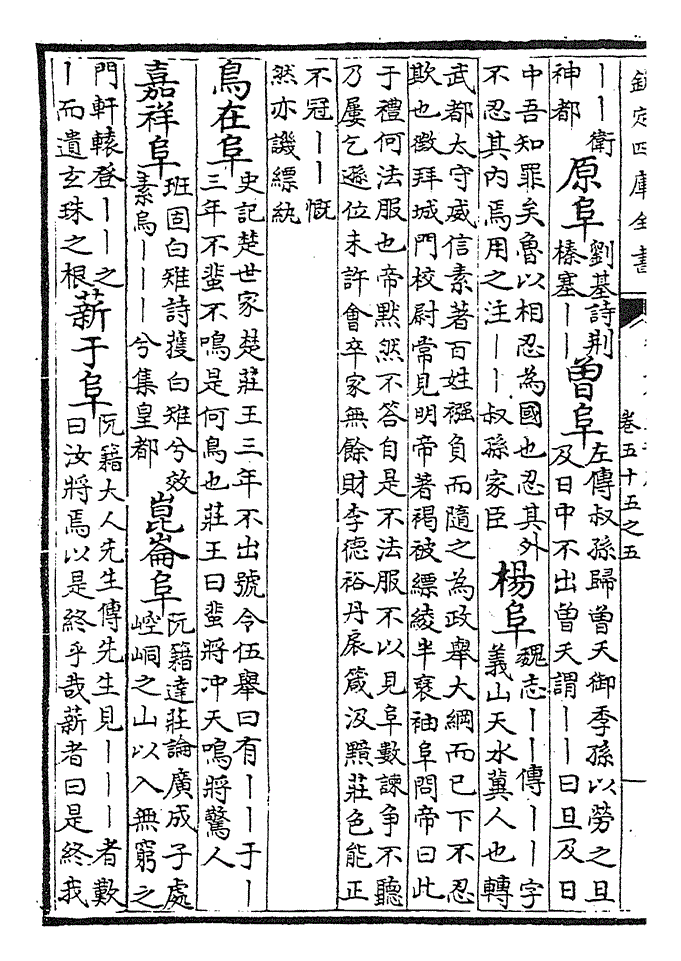 欽定四庫全書
卷五十五之五
丨丨衛
神都
原阜
劉基詩荆
榛塞丨丨
曾阜
左傳叔孫歸曾夭御季孫以勞之旦
及日中不出曾夭謂丨丨曰旦及日
中吾知罪矣魯以相忍為國也忍其外
不忍其内焉用之注丨丨叔孫家臣
楊阜
魏志丨丨傳丨丨字
義山天水冀人也轉
武都太守威信素著百姓襁負而隨之為政舉大綱而已下不忍
欺也徵拜城門校尉常見明帝著褐被縹綾半褎袖阜問帝曰此
于禮何法服也帝默然不答自是不法服不以見阜數諫争不聽
乃屢乞遜位未許會卒家無餘財李德裕丹扆箴汲黯莊色能正
不冠丨丨慨
然亦譏縹紈
鳥在阜
史記楚世家楚莊王三年不出號令伍舉曰有丨丨于丨
三年不蜚不鳴是何鳥也莊王曰蜚將冲天鳴將驚人
嘉祥阜
班固白雉詩獲白雉兮效
素烏丨丨丨兮集皇都
崑崙阜
阮籍達莊論廣成子處
崆峒之山以入無窮之
門軒轅登丨丨之
丨而遺玄珠之根
薪于阜
阮籍大人先生傳先生見丨丨丨者歎
曰汝將焉以是終乎哉薪者曰是終我